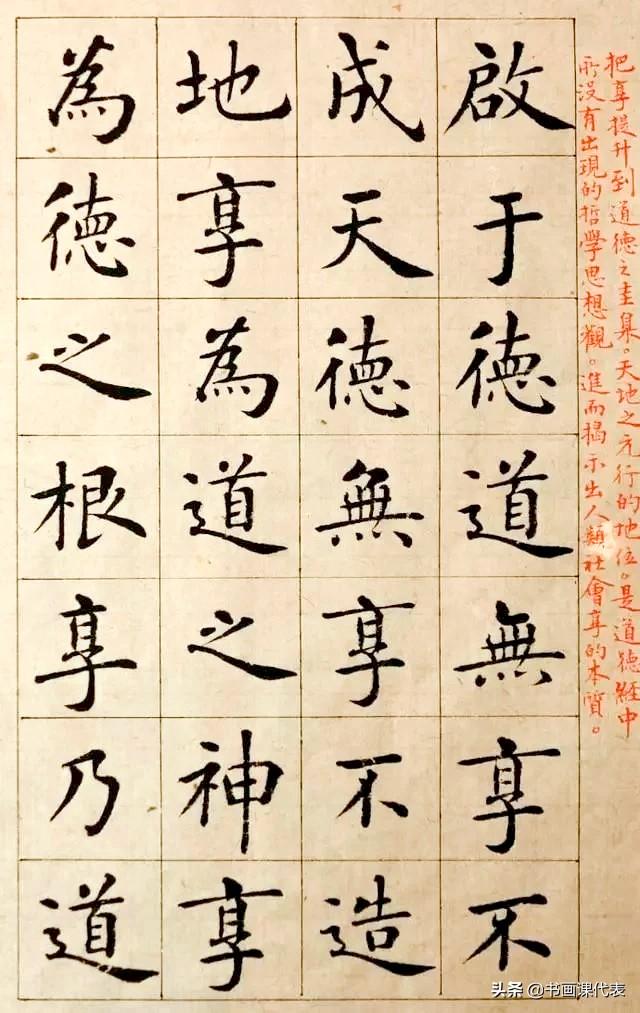 把享提升到道德之圭臬。天地之元行的地位。是道德經中
所没有出現的哲學思想觀。進而揭示出人類社會享的本質。
啟于德道無享不
成天德無享不造
地享為道之神享
為德之根享乃道
头条 @书画课代表